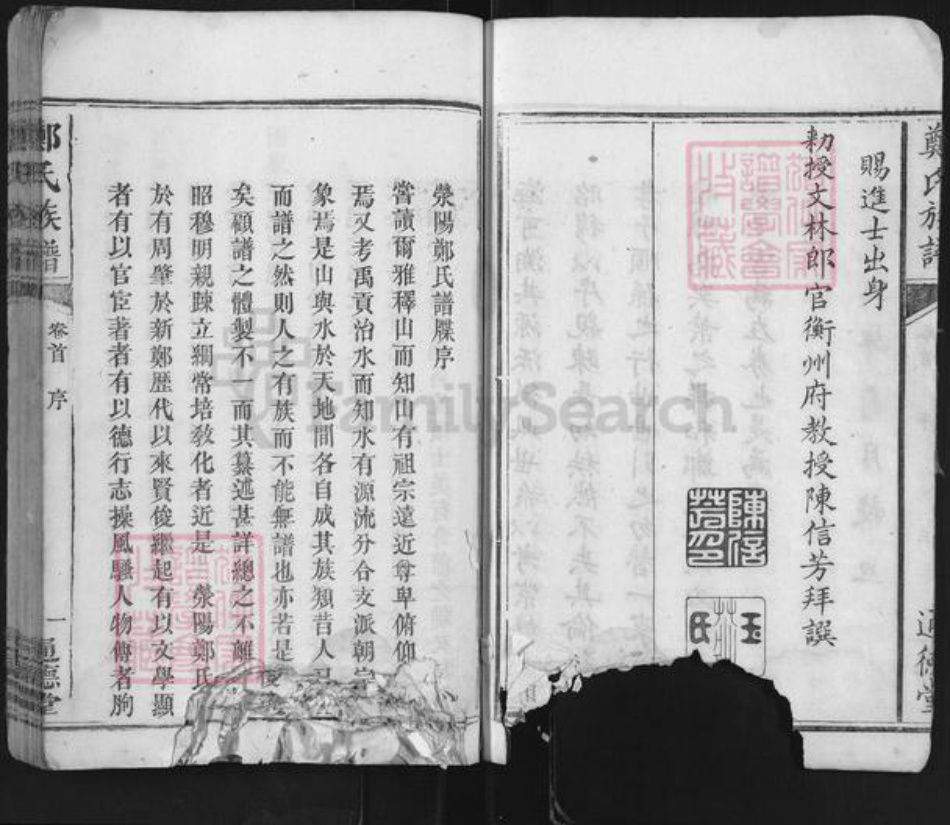 賜進士出身
勅授文林郎官衡州府教授陳信芳拜譔
陳信芳印
玉氏
通德堂
滎陽鄭氏譜牒序
嘗讀爾雅釋山而知山有祖宗遠近尊卑俯仰
焉又考禹貢治水而知水有源流分合支派朝宗
象焉是山與水於天地間各自成其族類昔人
而譜之然則人之有族而不能無譜也亦若是
矣顧譜之體製不一而其纂述甚詳總之不離
昭穆明親踈立綱常培敎化者近是 滎陽鄭氏
於有周肇於新鄭歷代以來賢俊繼起有以文學顯
者有以官宦著者有以德行志操風騷人物傳者朐
鄭氏族譜 卷首 序 一 通德堂
FamilySearch